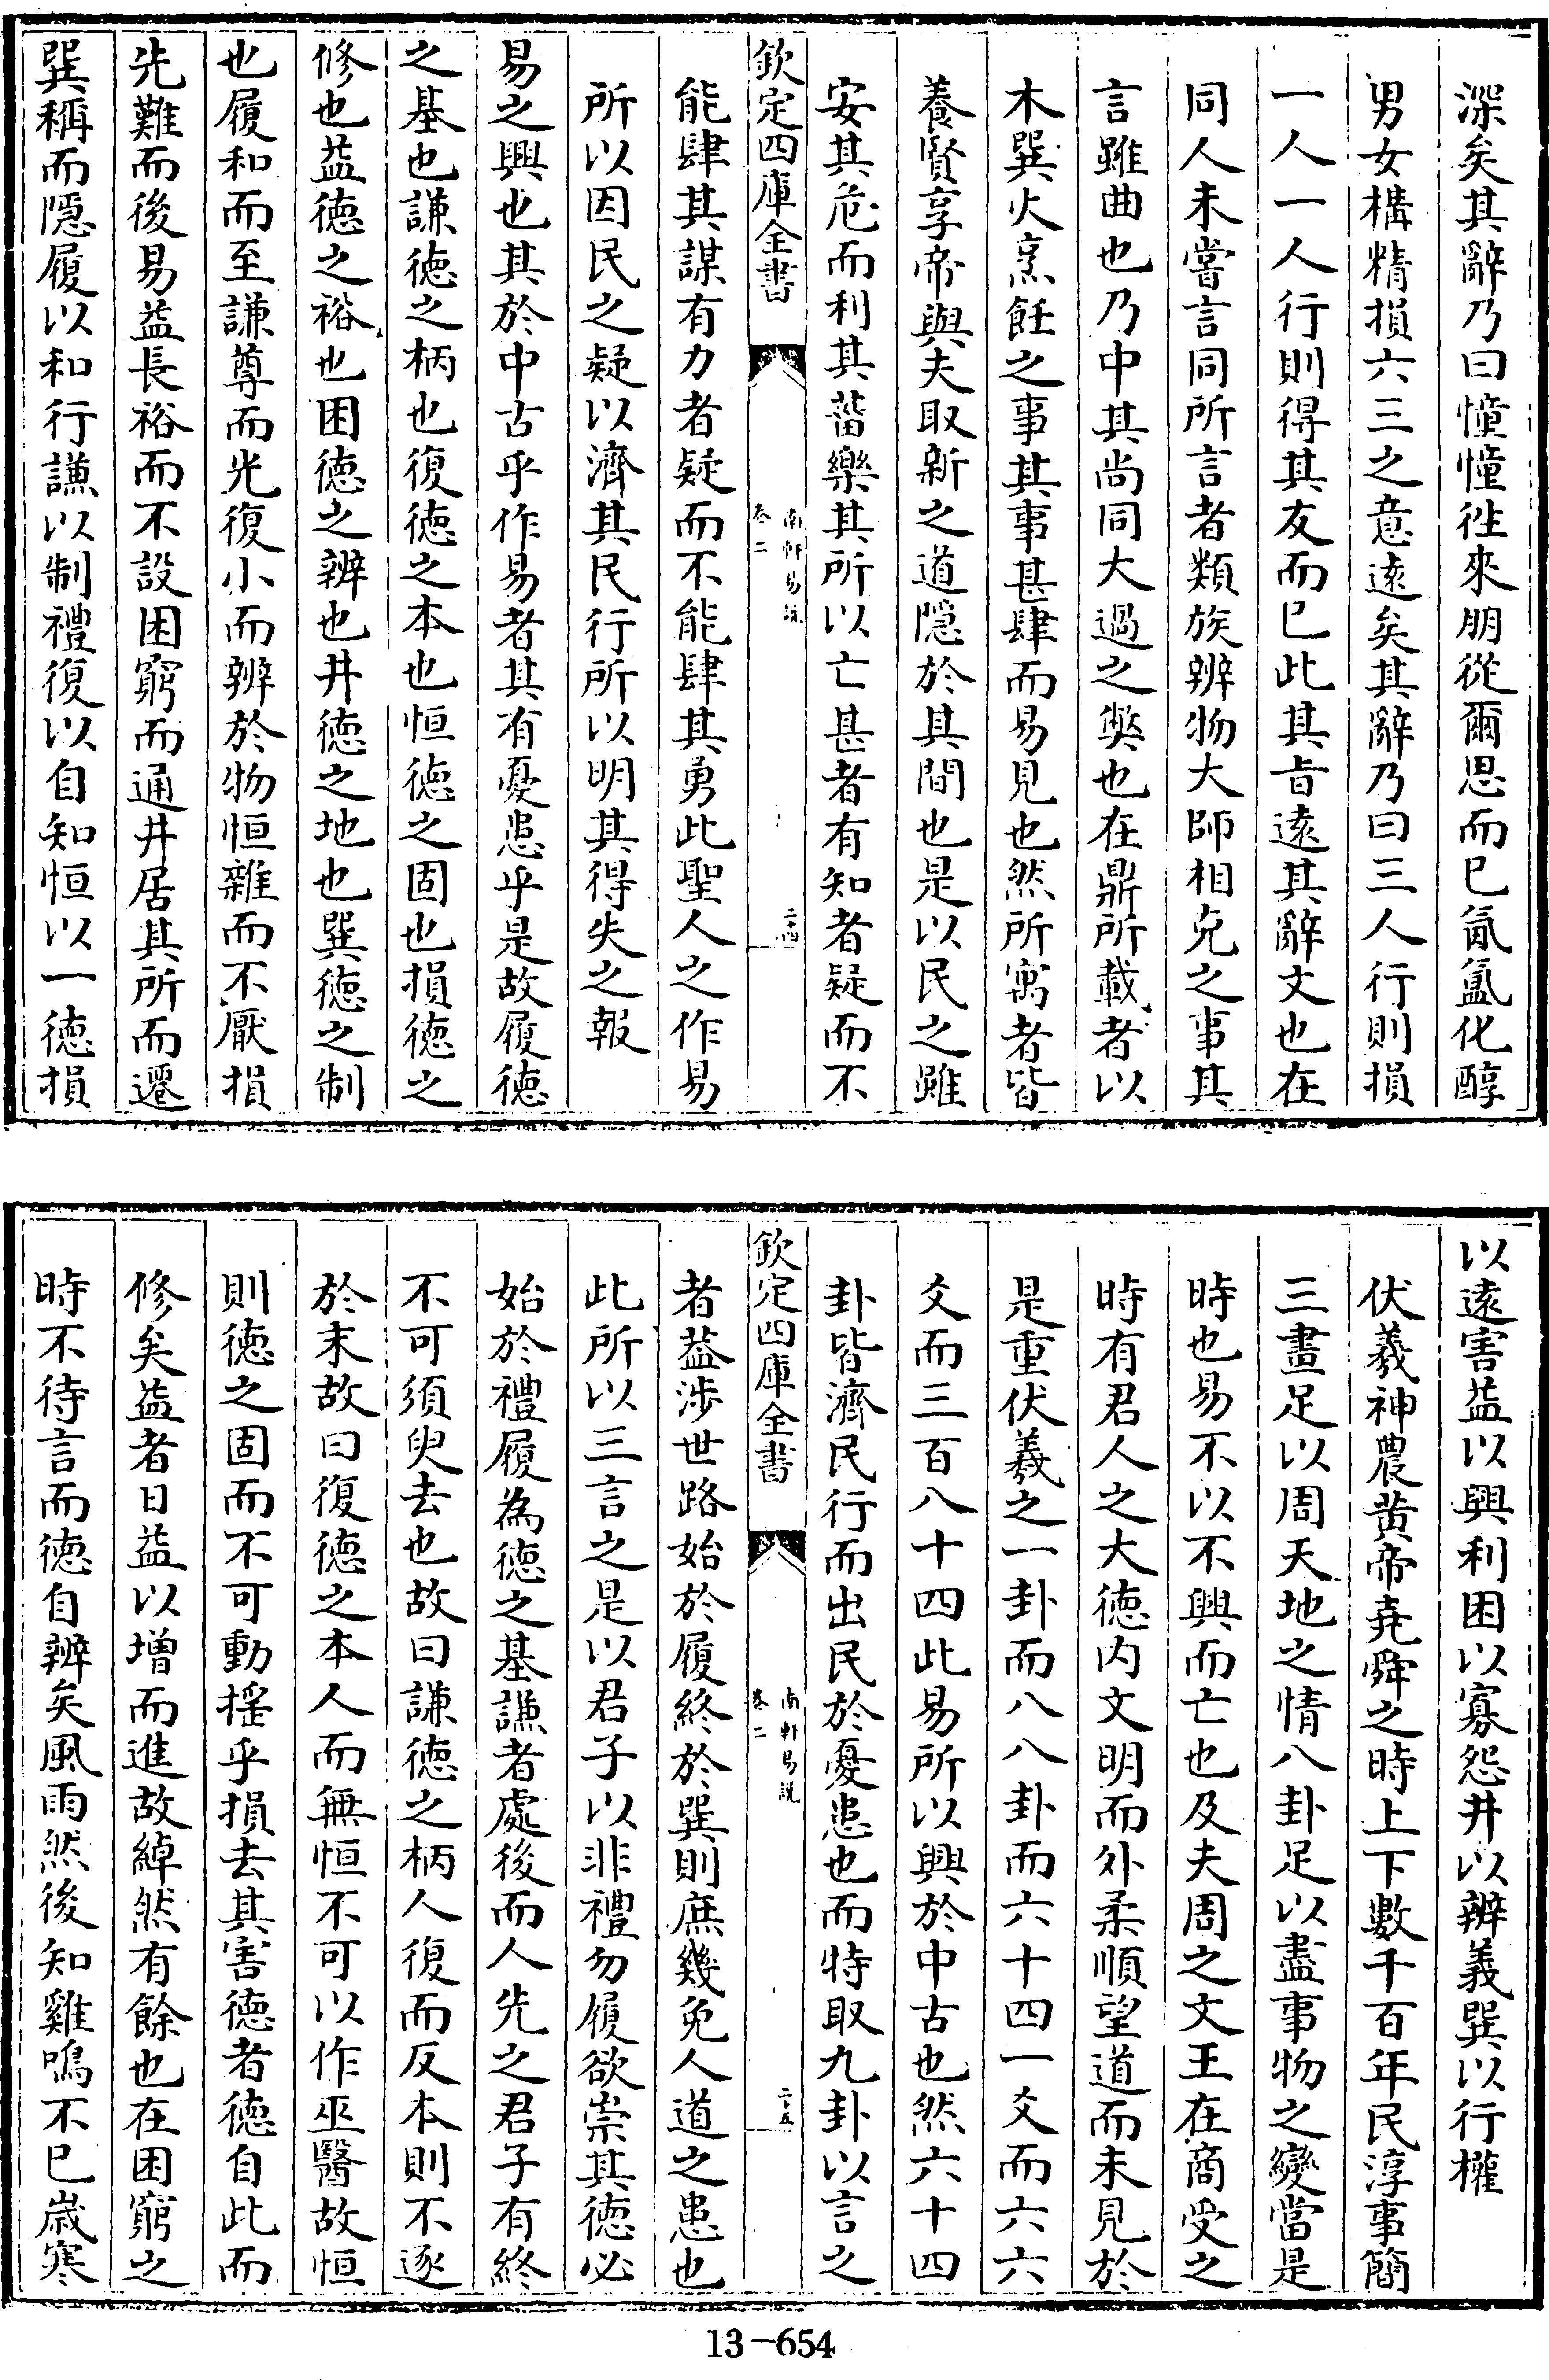 深矣其辭乃曰憧憧徃來朋從爾思而已氤氲化醇
男女構精損六三之意遠矣其辭乃曰三人行則損
一人一人行則得其友而已此其旨遠其辭文也在
同人未嘗言同所言者類族辨物大師相克之事其
言雖曲也乃中其尚同大過之獘也在鼎所載者以
木巽火烹飪之事其事甚肆而易見也然所寓者皆
養賢享帝與夫取新之道隠於其間也是以民之雖
安其危而利其菑樂其所以亡甚者有知者疑而不
欽定四庫全書
南軒易説
卷二
二十四
能肆其謀有力者疑而不能肆其勇此聖人之作易
所以因民之疑以濟其民行所以明其得失之報
易之興也其於中古乎作易者其有憂患乎是故履德
之基也謙德之柄也復德之本也恒德之固也損德之
修也益德之裕也困德之辨也井德之地也巽德之制
也履和而至謙尊而光復小而辨於物恒雜而不厭損
先難而後易益長裕而不設困窮而通井居其所而遷
巽稱而隠履以和行謙以制禮復以自知恒以一德損
以遠害益以興利困以寡怨井以辨義巽以行權
伏羲神農黄帝堯舜之時上下數千百年民淳事簡
三畫足以周天地之情八卦足以盡事物之變當是
時也易不以不興而亡也及夫周之文王在商受之
時有君人之大德内文明而外柔順望道而未見於
是重伏羲之一卦而八八卦而六十四一爻而六六
爻而三百八十四此易所以興於中古也然六十四
卦皆濟民行而出民於憂患也而特取九卦以言之
欽定四庫全書
南軒易説
卷二
二十五
者葢涉世路始於履終於巽則庶幾免人道之患也
此所以三言之是以君子以非禮勿履欲崇其德必
始於禮履為德之基謙者處後而人先之君子有終
不可須臾去也故曰謙德之柄人復而反本則不逐
於末故曰復德之本人而無恒不可以作巫醫故恒
則德之固而不可動揺乎損去其害德者德自此而
修矣益者日益以増而進故綽然有餘也在困窮之
時不待言而德自辨矣風雨然後知雞鳴不已歲寒
13-654